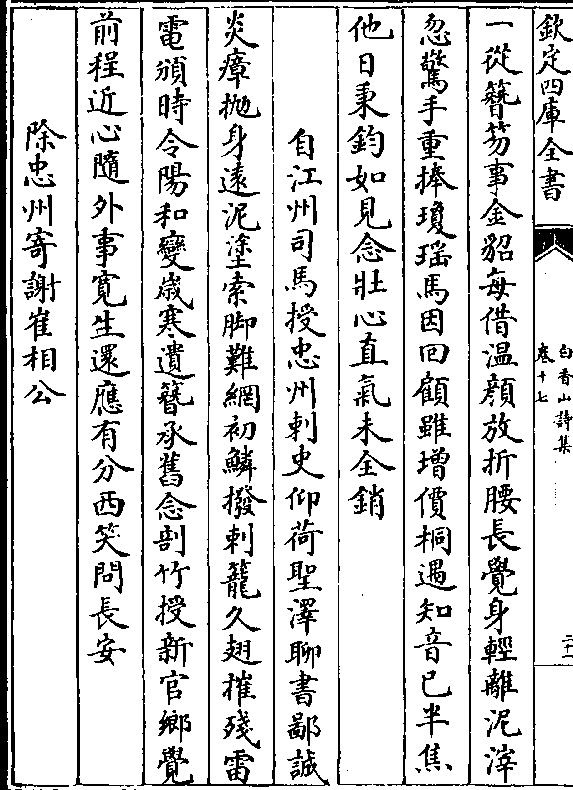 欽定四庫全書
白香山詩集
卷十七
二十一
一從簪笏事金貂每借溫顏放折腰長覺身輕離泥滓
忽驚手重捧瓊瑶馬因回顧雖增價桐遇知音已半焦
他日秉鈞如見念壯心直氣未全銷
自江州司馬授忠州刺史仰荷聖澤聊書鄙誠
炎瘴抛身遠泥塗索脚難網初鱗撥剌籠久翅摧殘雷
電頒時令陽和變歲寒遺簪承舊念剖竹授新官鄉覺
前程近心隨外事寛生還應有分西笑問長安
除忠州寄謝崔相公